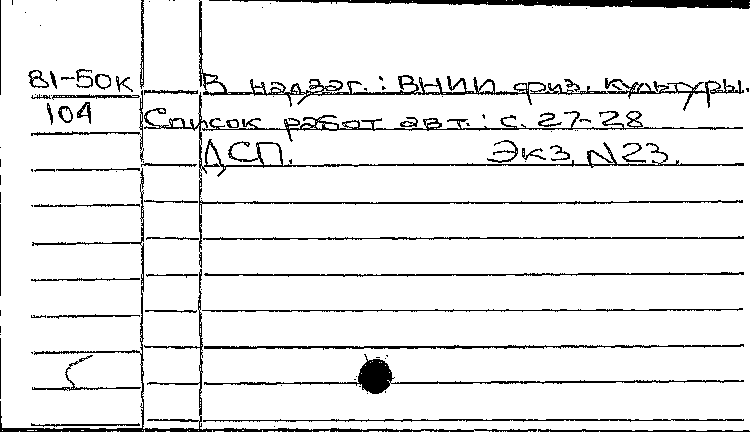 81-50к В надзаг.: ВНИИ физ. культуры.
104 Список работ авт.: с. 27-28
ДСП. Экз. N23.